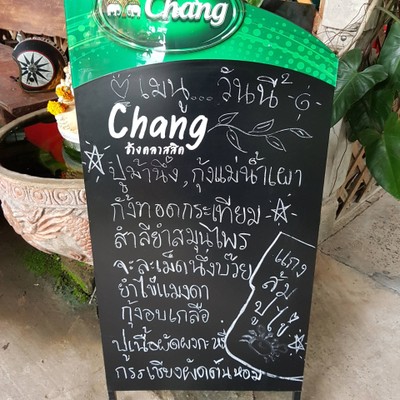 Chang
เมนู... วันนี้
Chang
ช้างคลาสสิค
ปูม้านึ่ง, กุ้งแม่น้ำเผา
กั้งทอดกระเทียม
สำลียำสมุนไพร
จะละเม็ดนึ่งบ๊วย
ยำไข่แมงดา
กุ้งอบเกลือ
ปูเนื้อผัดผงกะหรี่
กรรเชียงผัดต้นหอม
แกง
ส้ม
ปู
ไข่